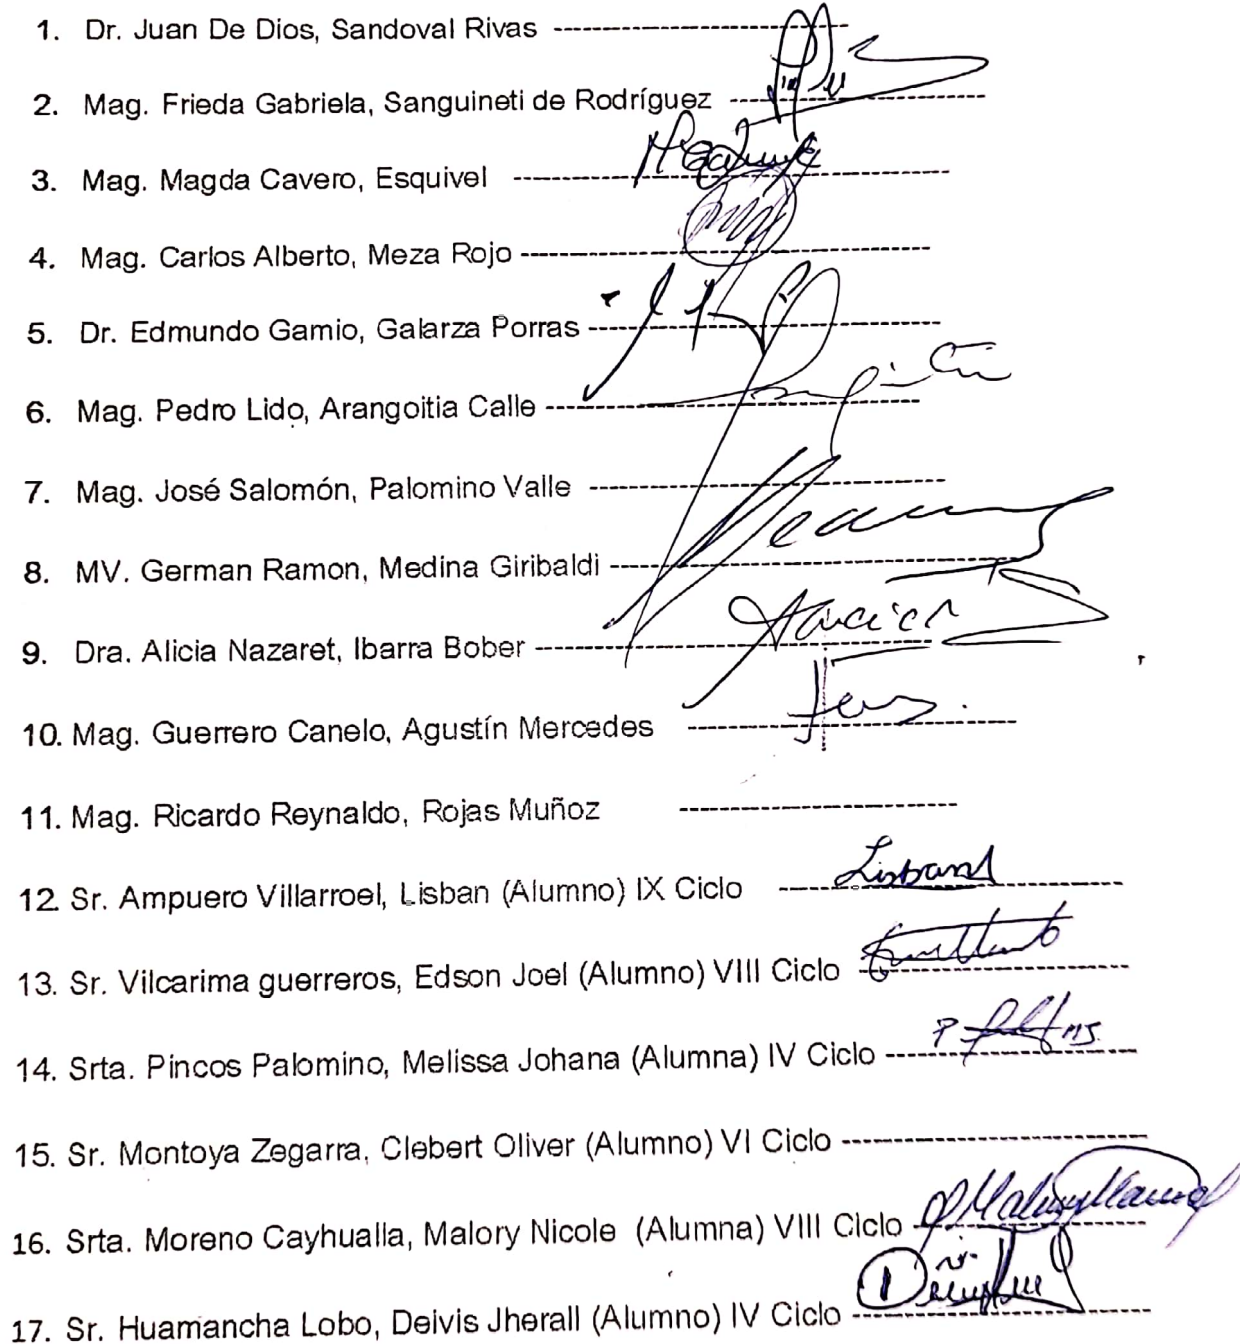 1. Dr. Juan De Dios, Sandoval Rivas
2. Mag. Frieda Gabriela, Sanguineti de Rodríguez
3. Mag. Magda Cavero, Esquivel
4. Mag. Carlos Alberto, Meza Rojo
5. Dr. Edmundo Gamio, Galarza Porras
6. Mag. Pedro Lido, Arangoitia Calle
7. Mag. José Salomón, Palomino Valle
8. MV. German Ramon, Medina Giribaldi
9. Dra. Alicia Nazaret, Ibarra Bober
10. Mag. Guerrero Canelo, Agustín Mercedes
11. Mag. Ricardo Reynaldo, Rojas Muñoz
12. Sr. Ampuero Villarroel, Lisban (Alumno) IX Ciclo Lisban
13. Sr. Vilcarima guerreros, Edson Joel (Alumno) VIII Ciclo
14. Srta. Pincos Palomino, Melissa Johana (Alumna) IV Ciclo
15. Sr. Montoya Zegarra, Clebert Oliver (Alumno) VI Ciclo
16. Srta. Moreno Cayhualla, Malory Nicole (Alumna) VIII Ciclo
17. Sr. Huamancha Lobo, Deivis Jherall (Alumno) IV Ciclo